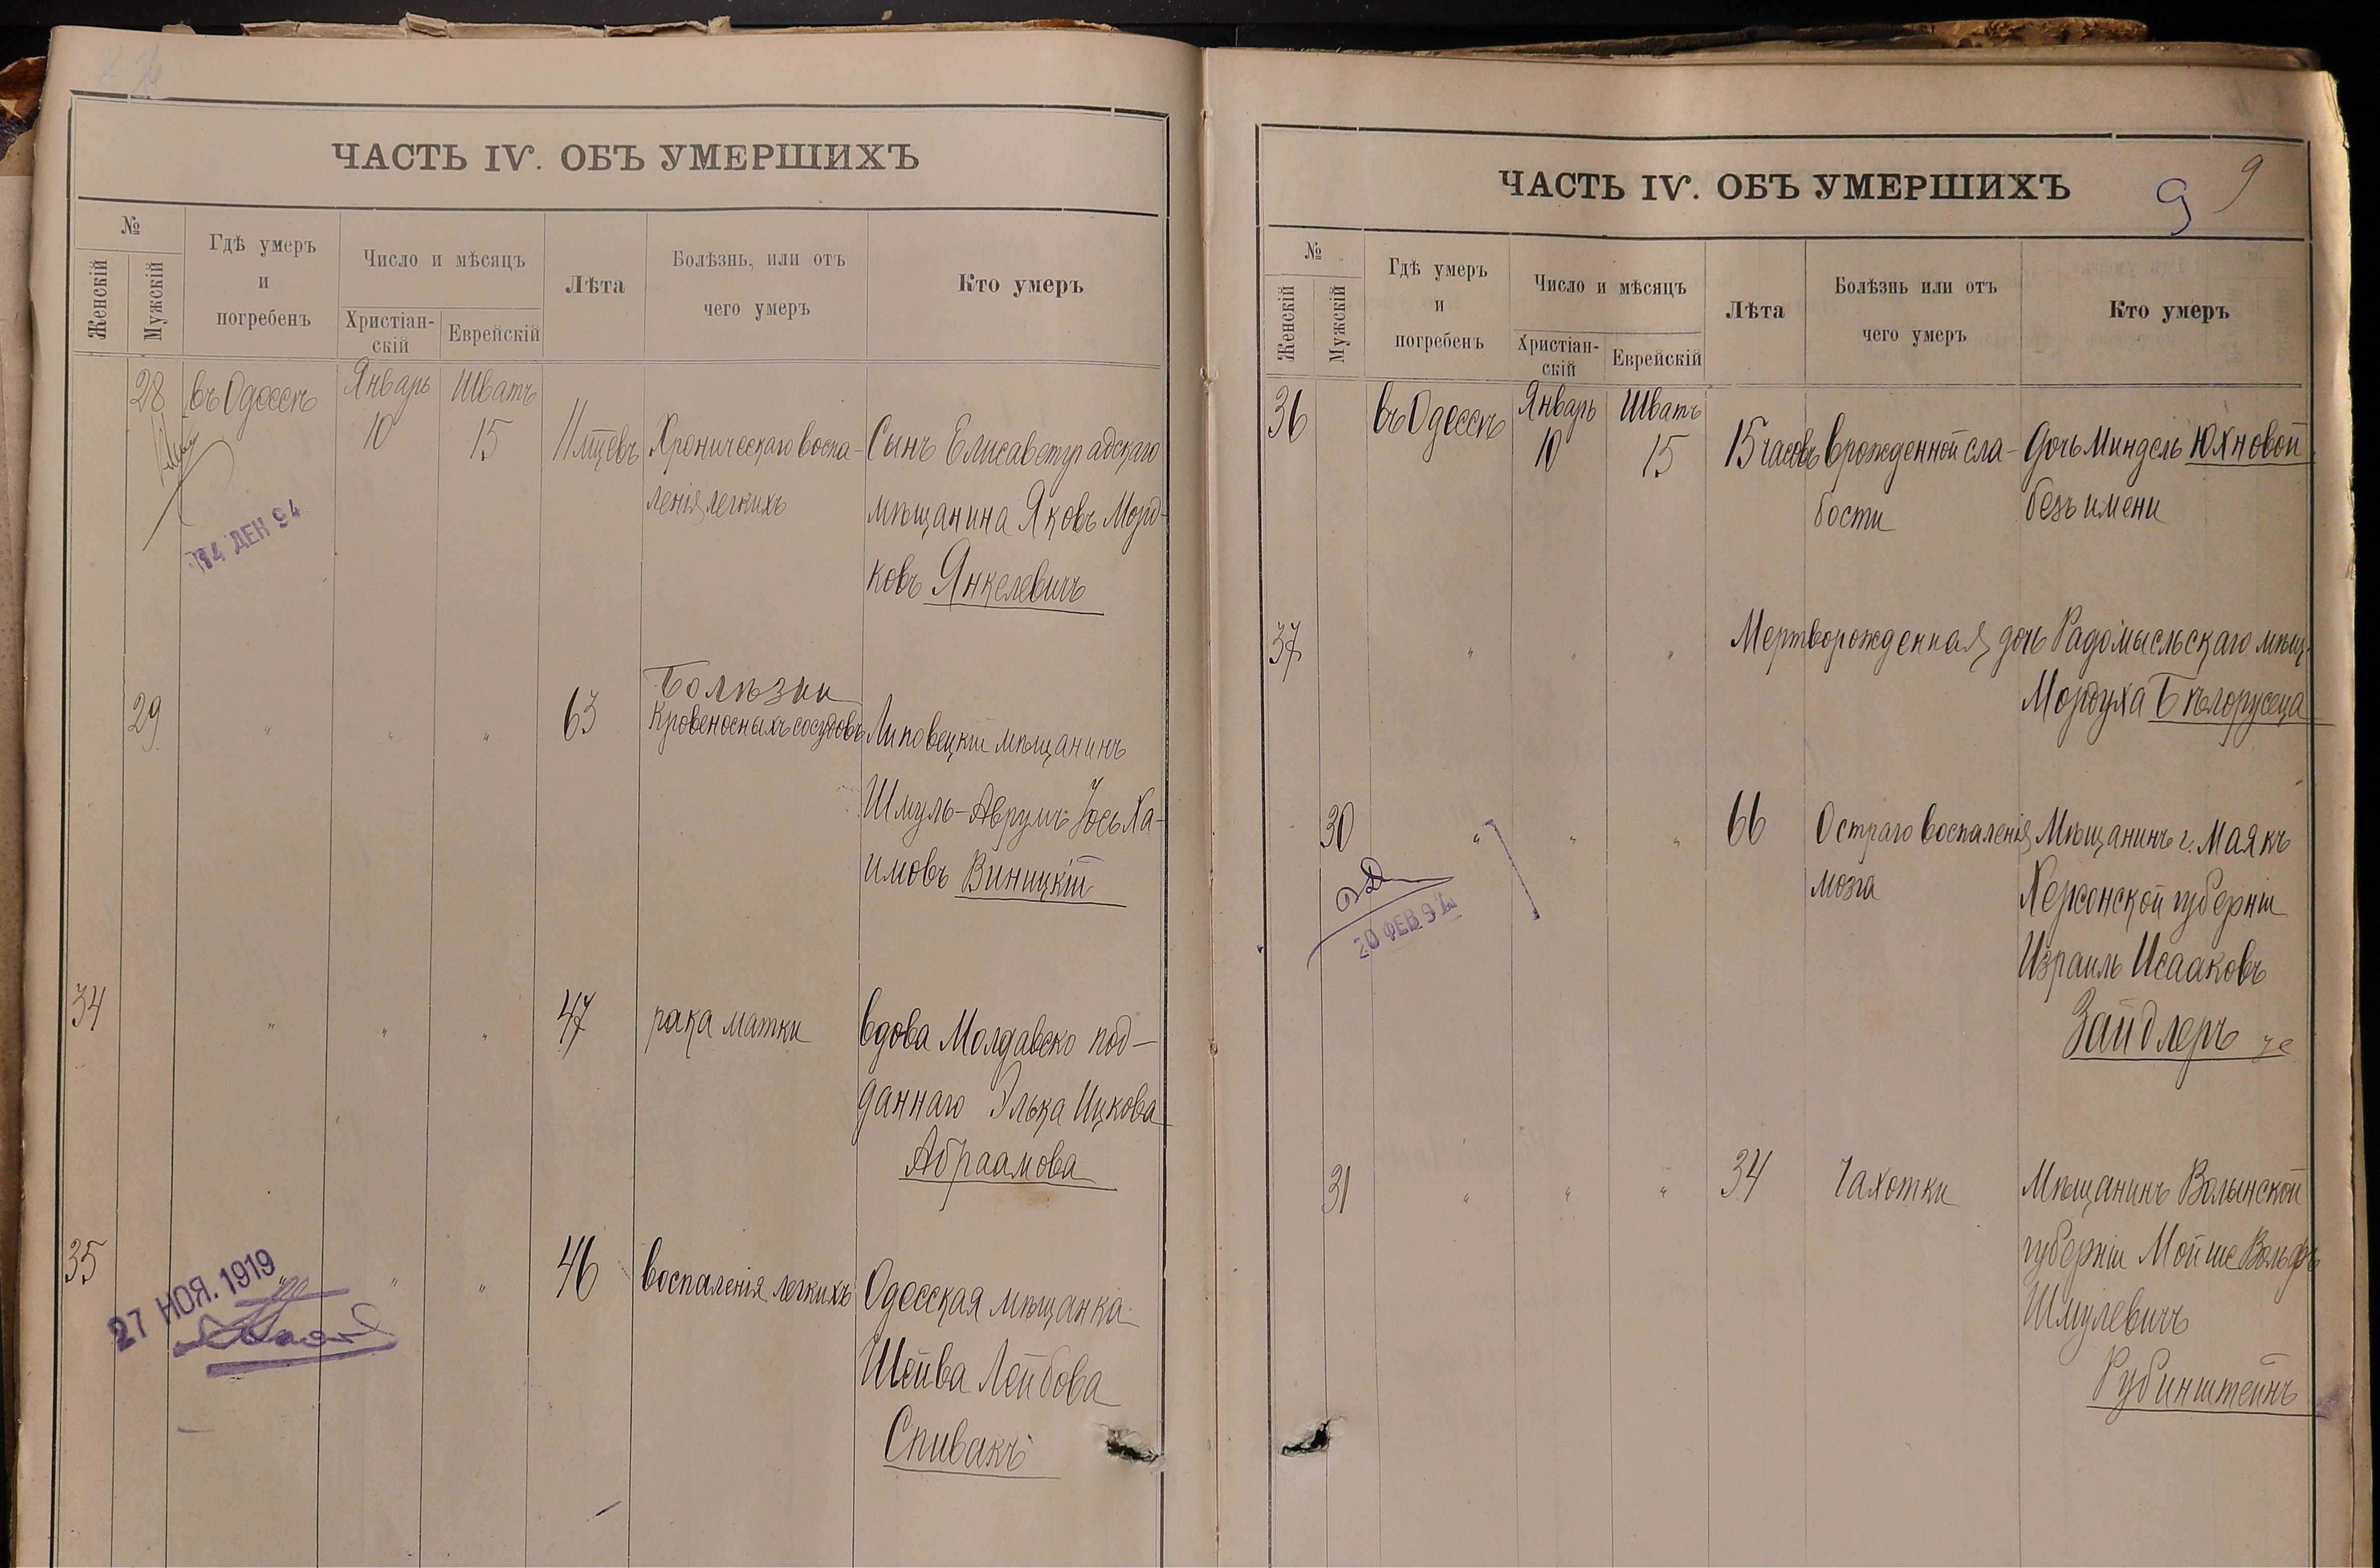 ЧАСТЬ IV. ОБЪ УМЕРШИХЪ
№
Женскій
Мужскій
Гдѣ умеръ
и
погребенъ
Число и мѣсяцъ
Христіан-
скій
Еврейскій
Лѣта
Болѣзнь, или отъ
чего умеръ
Кто умеръ
28 въ Одессѣ Январь Шватъ
10 15 11 мцевъ Хроническаго воспа- Сынъ Елисаветградскаго
ленія легкихъ мѣщанина Яковъ Морд-
ковъ Янкелевичъ
14 ДЕК 94
29 " " " 63 Болѣзни
Кровеносныхъ сосудовъ Липовецкій мѣщанинъ
Шмуль-Аврумъ Іось Ха-
имовъ Виницкій
34 " " " 47 рака матки вдова Молдавско под-
даннаго Элька Ицкова
Абраамова
35 " " " 46 воспаленія легкихъ Одесская мѣщанка
Шейва Лейбова
Спивакъ
27 НОЯ. 1919
ЧАСТЬ IV. ОБЪ УМЕРШИХЪ
9 9
№
Женскій
Мужскій
Гдѣ умеръ
и
погребенъ
Число и мѣсяцъ
Христіан-
скій
Еврейскій
Лѣта
Болѣзнь или отъ
чего умеръ
Кто умеръ
36 въ Одессѣ Январь Шватъ
10 15 15 часовъ врожденной сла- Дочь Миндель Юхновой
бости безъ имени
37 " " " Мертворожденная дочь Радомысльскаго мѣщ.
Мордуха Бѣлорусеца
30 " " " 66 Остраго воспаленія Мѣщанинъ г. Маякъ
мозга Херсонской губерніи
Израиль Исааковъ
Зайдлеръ
20 ФЕВ 9
31 " " " 34 Чахотки Мѣщанинъ Волынской
губерніи Мойше Вольфъ
Шмулевичъ
Рубинштейнъ